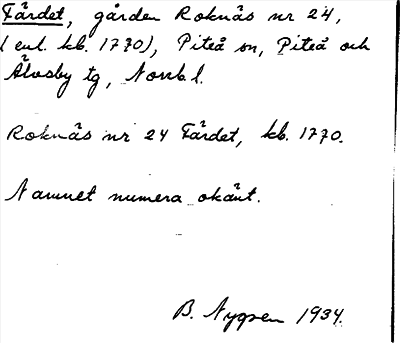 Färdet, gården Roknäs nr 24,
(enl. kb. 1770), Piteå sn, Piteå och
Älvsby tg, Norrb. l.
Roknäs nr 24 Färdet, kb. 1770.
Namnet numera okänt.
B. Nygren 1934.